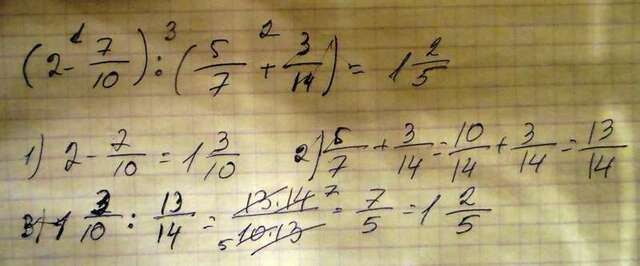 (2 - 7/10) : (5/7 + 3/14) = 1 2/5
1) 2 - 7/10 = 1 3/10 2) 5/7 + 3/14 = 10/14 + 3/14 = 13/14
3) 1 3/10 : 13/14 = 13·14/10·13 = 7/5 = 1 2/5